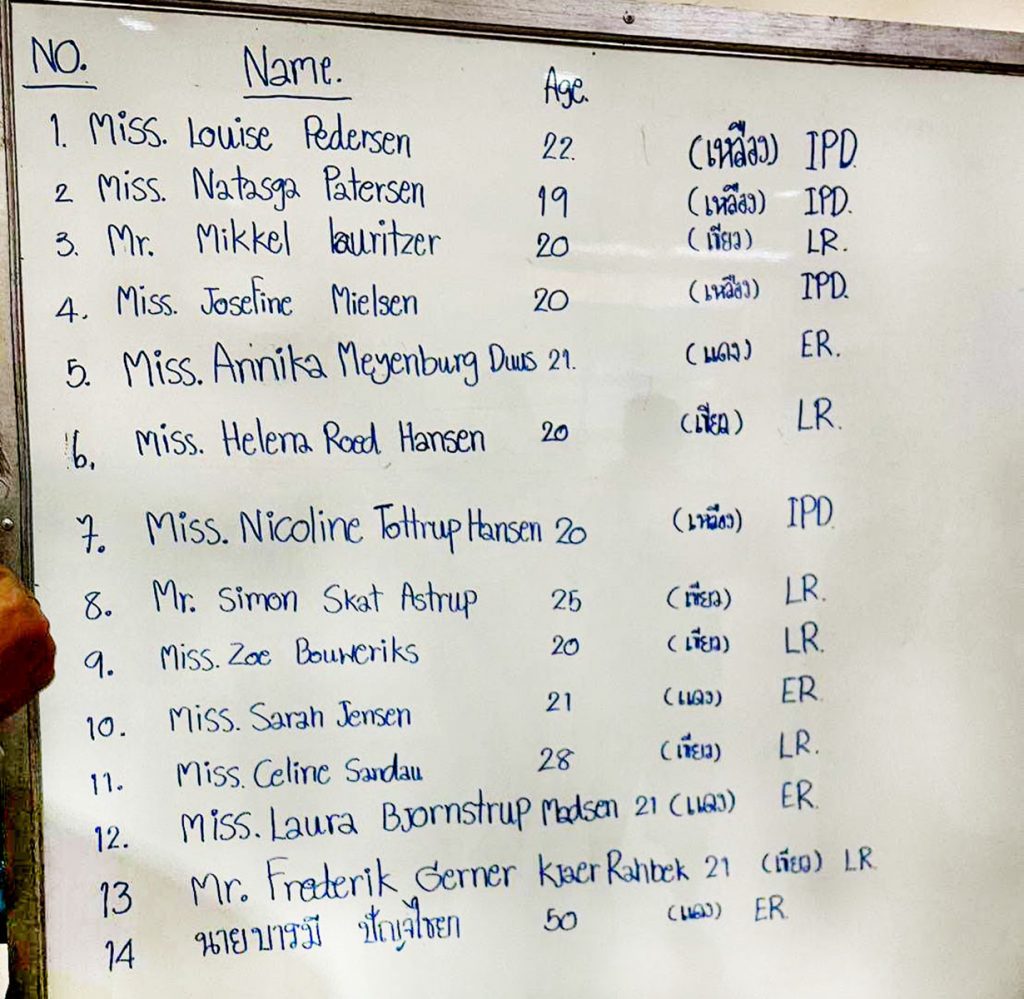 NO. Name. Age.
1. Miss. Louise Pedersen 22. (เหลือง) IPD.
2 Miss. Natasga Patersen 19 (เหลือง) IPD.
3. Mr. Mikkel lauritzer 20 (เขียว) LR.
4. Miss. Josefine Mielsen 20 (เหลือง) IPD.
5. Miss. Annika Meyenburg Duus 21. (แดง) ER.
6. Miss. Helena Roed Hansen 20 (เขียว) LR.
7. Miss. Nicoline Tottrup Hansen 20 (เหลือง) IPD.
8. Mr. Simon Skat Astrup 25 (เขียว) LR.
9. Miss. Zoe Bouweriks 20 (เขียว) LR.
10. Miss. Sarah Jensen 21 (แดง) ER.
11. Miss. Celine Sandau 28 (เขียว) LR.
12. Miss. Laura Bjornstrup Madsen 21 (แดง) ER.
13 Mr. Frederik Gerner Kjaer Rahbek 21 (เขียว) LR.
14 นายบารมี 50 (แดง) ER.